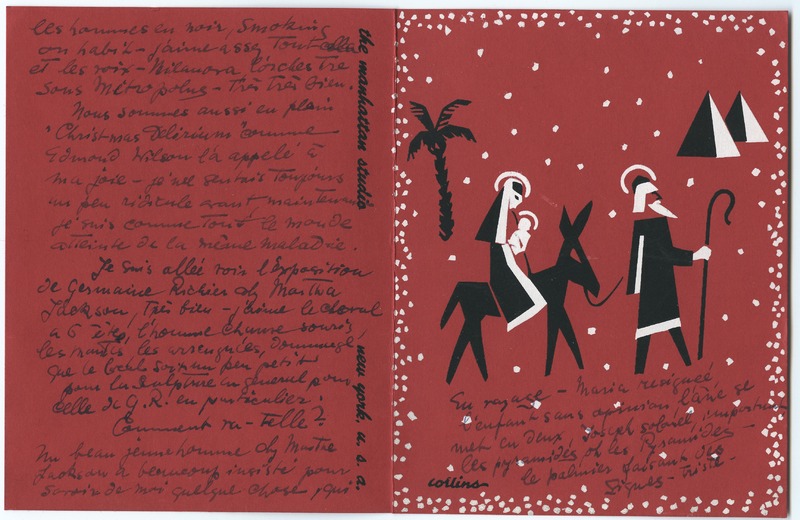 les hommes en noir, Smoking
ou habit - j'aime assez tout cela
et les voix - Milanova l'orchestre
sous Métropolus - Très Très bien.
Nous sommes aussi en plein
"Christmas Délirium" comme
Edmond Wilson l'a appelé à
ma joie - je me sentais toujours
un peu ridicule avant maintenant
je suis comme tout le monde
atteinte de la même maladie.
Je suis allée voir l'Exposition
de Germaine Richier chez Martha
Jackson, très bien - j'aime le cheval
à 6 têtes, l'homme chauve souris,
les mantes, les araignées, dommage
que le local soit un peu petit
pour la sculpture en général pour
celle de G.R. en particulier.
Comment va-t-elle?
Un beau jeune homme chez Martha
Jackson a beaucoup insisté pour
savoir de moi quelque chose, qui
the manhattan studio, new york. u. s. a.
En voyage - Maria résignée
l'enfant sans opinion l'âne se
met en deux, Joseph solaire, important
les pyramides oh les Pyramides -
le palmier faisant des
Signes - triste -
collins